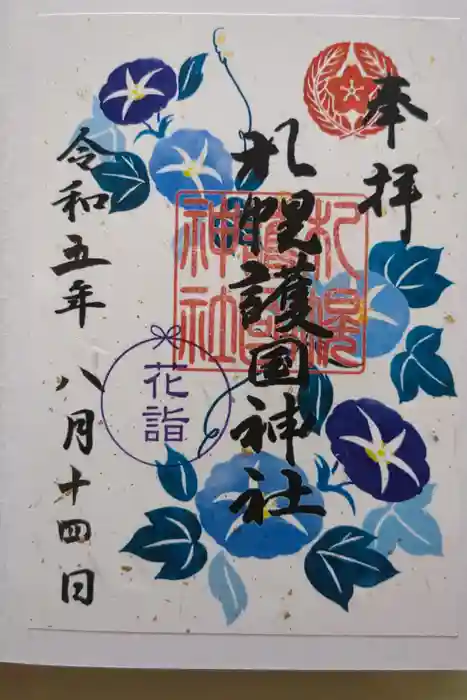 奉拝
札幌護国神社
札幌護國神社
花詣
令和五年 八月十四日